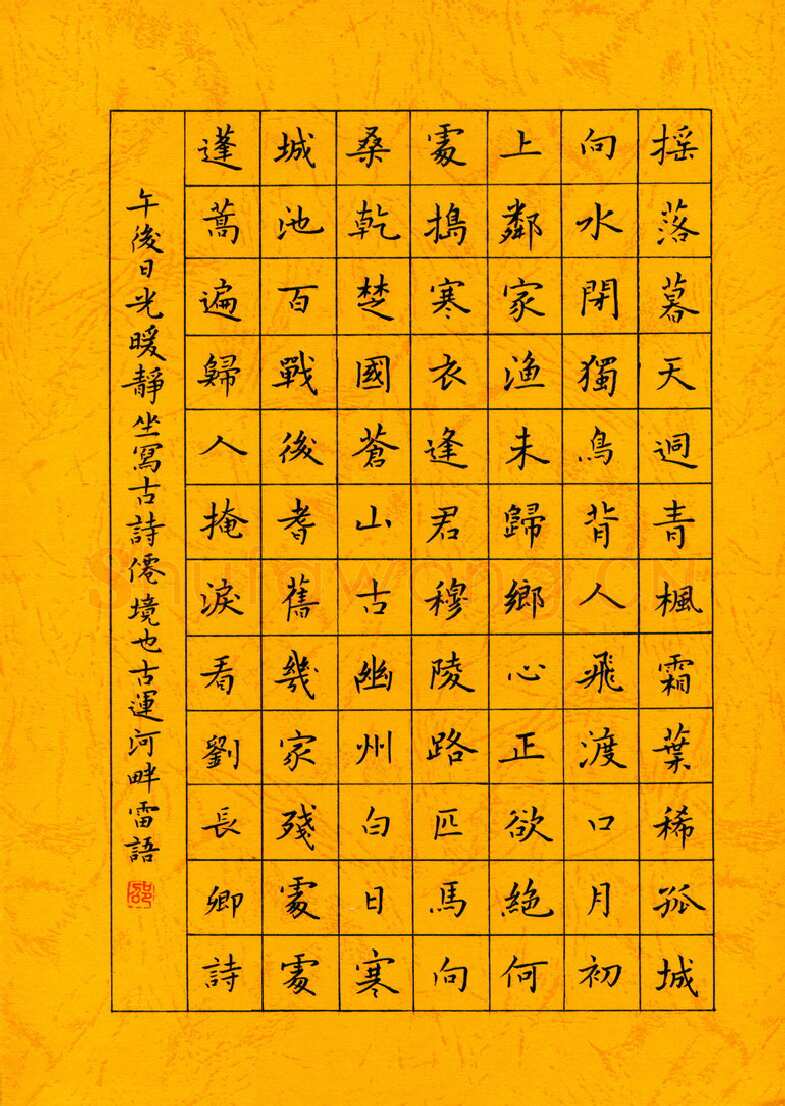 摇落暮天逈青楓霜葉稀孤城
向水閉獨鳥背人飛渡口月初
上鄰家渔未歸鄉心正欲絶何
處搗寒衣逢君穆陵路匹馬向
桑乾楚國蒼山古幽州白日寒
城池百戰後耆舊幾家殘處處
蓬蒿遍歸人掩淚看劉長卿詩
午後日光暖靜坐寫古詩僊境也古運河畔雷語
Shufawang.CN